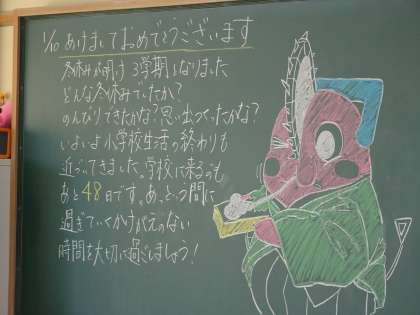 1/10 あけましておめでとうございます
冬休みが明け 3学期となりました
どんな冬休みでしたか？
のんびりできたかな？思い出つくったかな？
いよいよ小学校生活の終わりも
近づいてきました。学校に来るのも
あと48日です。あっとゆう間に
過ぎていくかけがえのない
時間を大切に過ごしましょう！